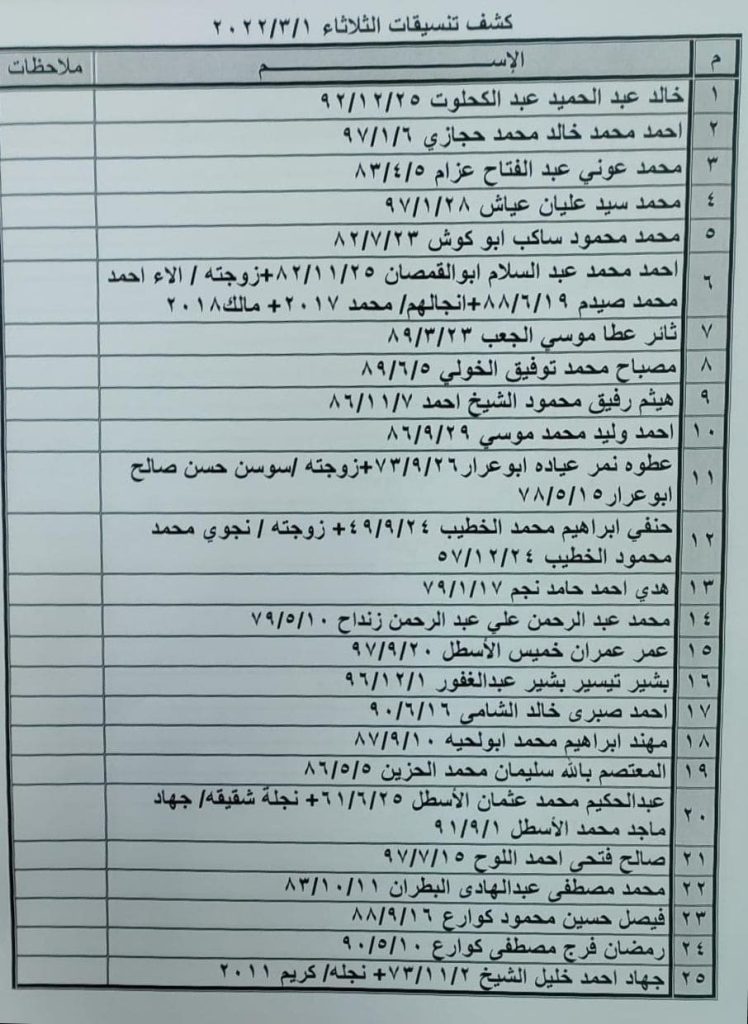 كشف تنسيقات الثلاثاء ٢٠٢٢/٣/١
م الإســـــــم ملاحظات
١ خالد عبد الحميد عبد الكحلوت ٩٢/١٢/٢٥
٢ احمد محمد خالد محمد حجازي ٩٧/١/٦
٣ محمد عوني عبد الفتاح عزام ٨٣/٤/٥
٤ محمد سيد عليان عياش ٩٧/١/٢٨
٥ محمد محمود ساكب ابو كوش ٨٢/٧/٢٣
٦ احمد محمد عبد السلام ابوالقمصان ٨٢/١١/٢٥+زوجته / الاء احمد
محمد صيدم ٨٨/٦/١٩+انجالهم/ محمد ٢٠١٧+ مالك٢٠١٨
٧ ثائر عطا موسي الجعب ٨٩/٣/٢٣
٨ مصباح محمد توفيق الخولي ٨٩/٦/٥
٩ هيثم رفيق محمود الشيخ احمد ٨٦/١١/٧
١٠ احمد وليد محمد موسي ٨٦/٩/٢٩
١١ عطوه نمر عياده ابوعرار٧٣/٩/٢٦+زوجته /سوسن حسن صالح
ابوعرار٧٨/٥/١٥
١٢ حنفي ابراهيم محمد الخطيب ٤٩/٩/٢٤+ زوجته / نجوي محمد
محمود الخطيب ٥٧/١٢/٢٤
١٣ هدي احمد حامد نجم ٧٩/١/١٧
١٤ محمد عبد الرحمن علي عبد الرحمن زنداح ٧٩/٥/١٠
١٥ عمر عمران خميس الأسطل ٩٧/٩/٢٠
١٦ بشير تيسير بشير عبدالغفور ٩٦/١٢/١
١٧ احمد صبرى خالد الشامى ٩٠/٦/١٦
١٨ مهند ابراهيم محمد ابولحيه ٨٧/٩/١٠
١٩ المعتصم بالله سليمان محمد الحزين ٨٦/٥/٥
٢٠ عبدالحكيم محمد عثمان الأسطل ٦١/٦/٢٥+ نجلة شقيقه/ جهاد
ماجد محمد الأسطل ٩١/٩/١
٢١ صالح فتحى احمد اللوح ٩٧/٧/١٥
٢٢ محمد مصطفى عبدالهادى البطران ٨٣/١٠/١١
٢٣ فيصل حسين محمود كوارع ٨٨/٩/١٦
٢٤ رمضان فرج مصطفى كوارع ٩٠/٥/١٠
٢٥ جهاد احمد خليل الشيخ ٧٣/١١/٢+ نجله/ كريم ٢٠١١